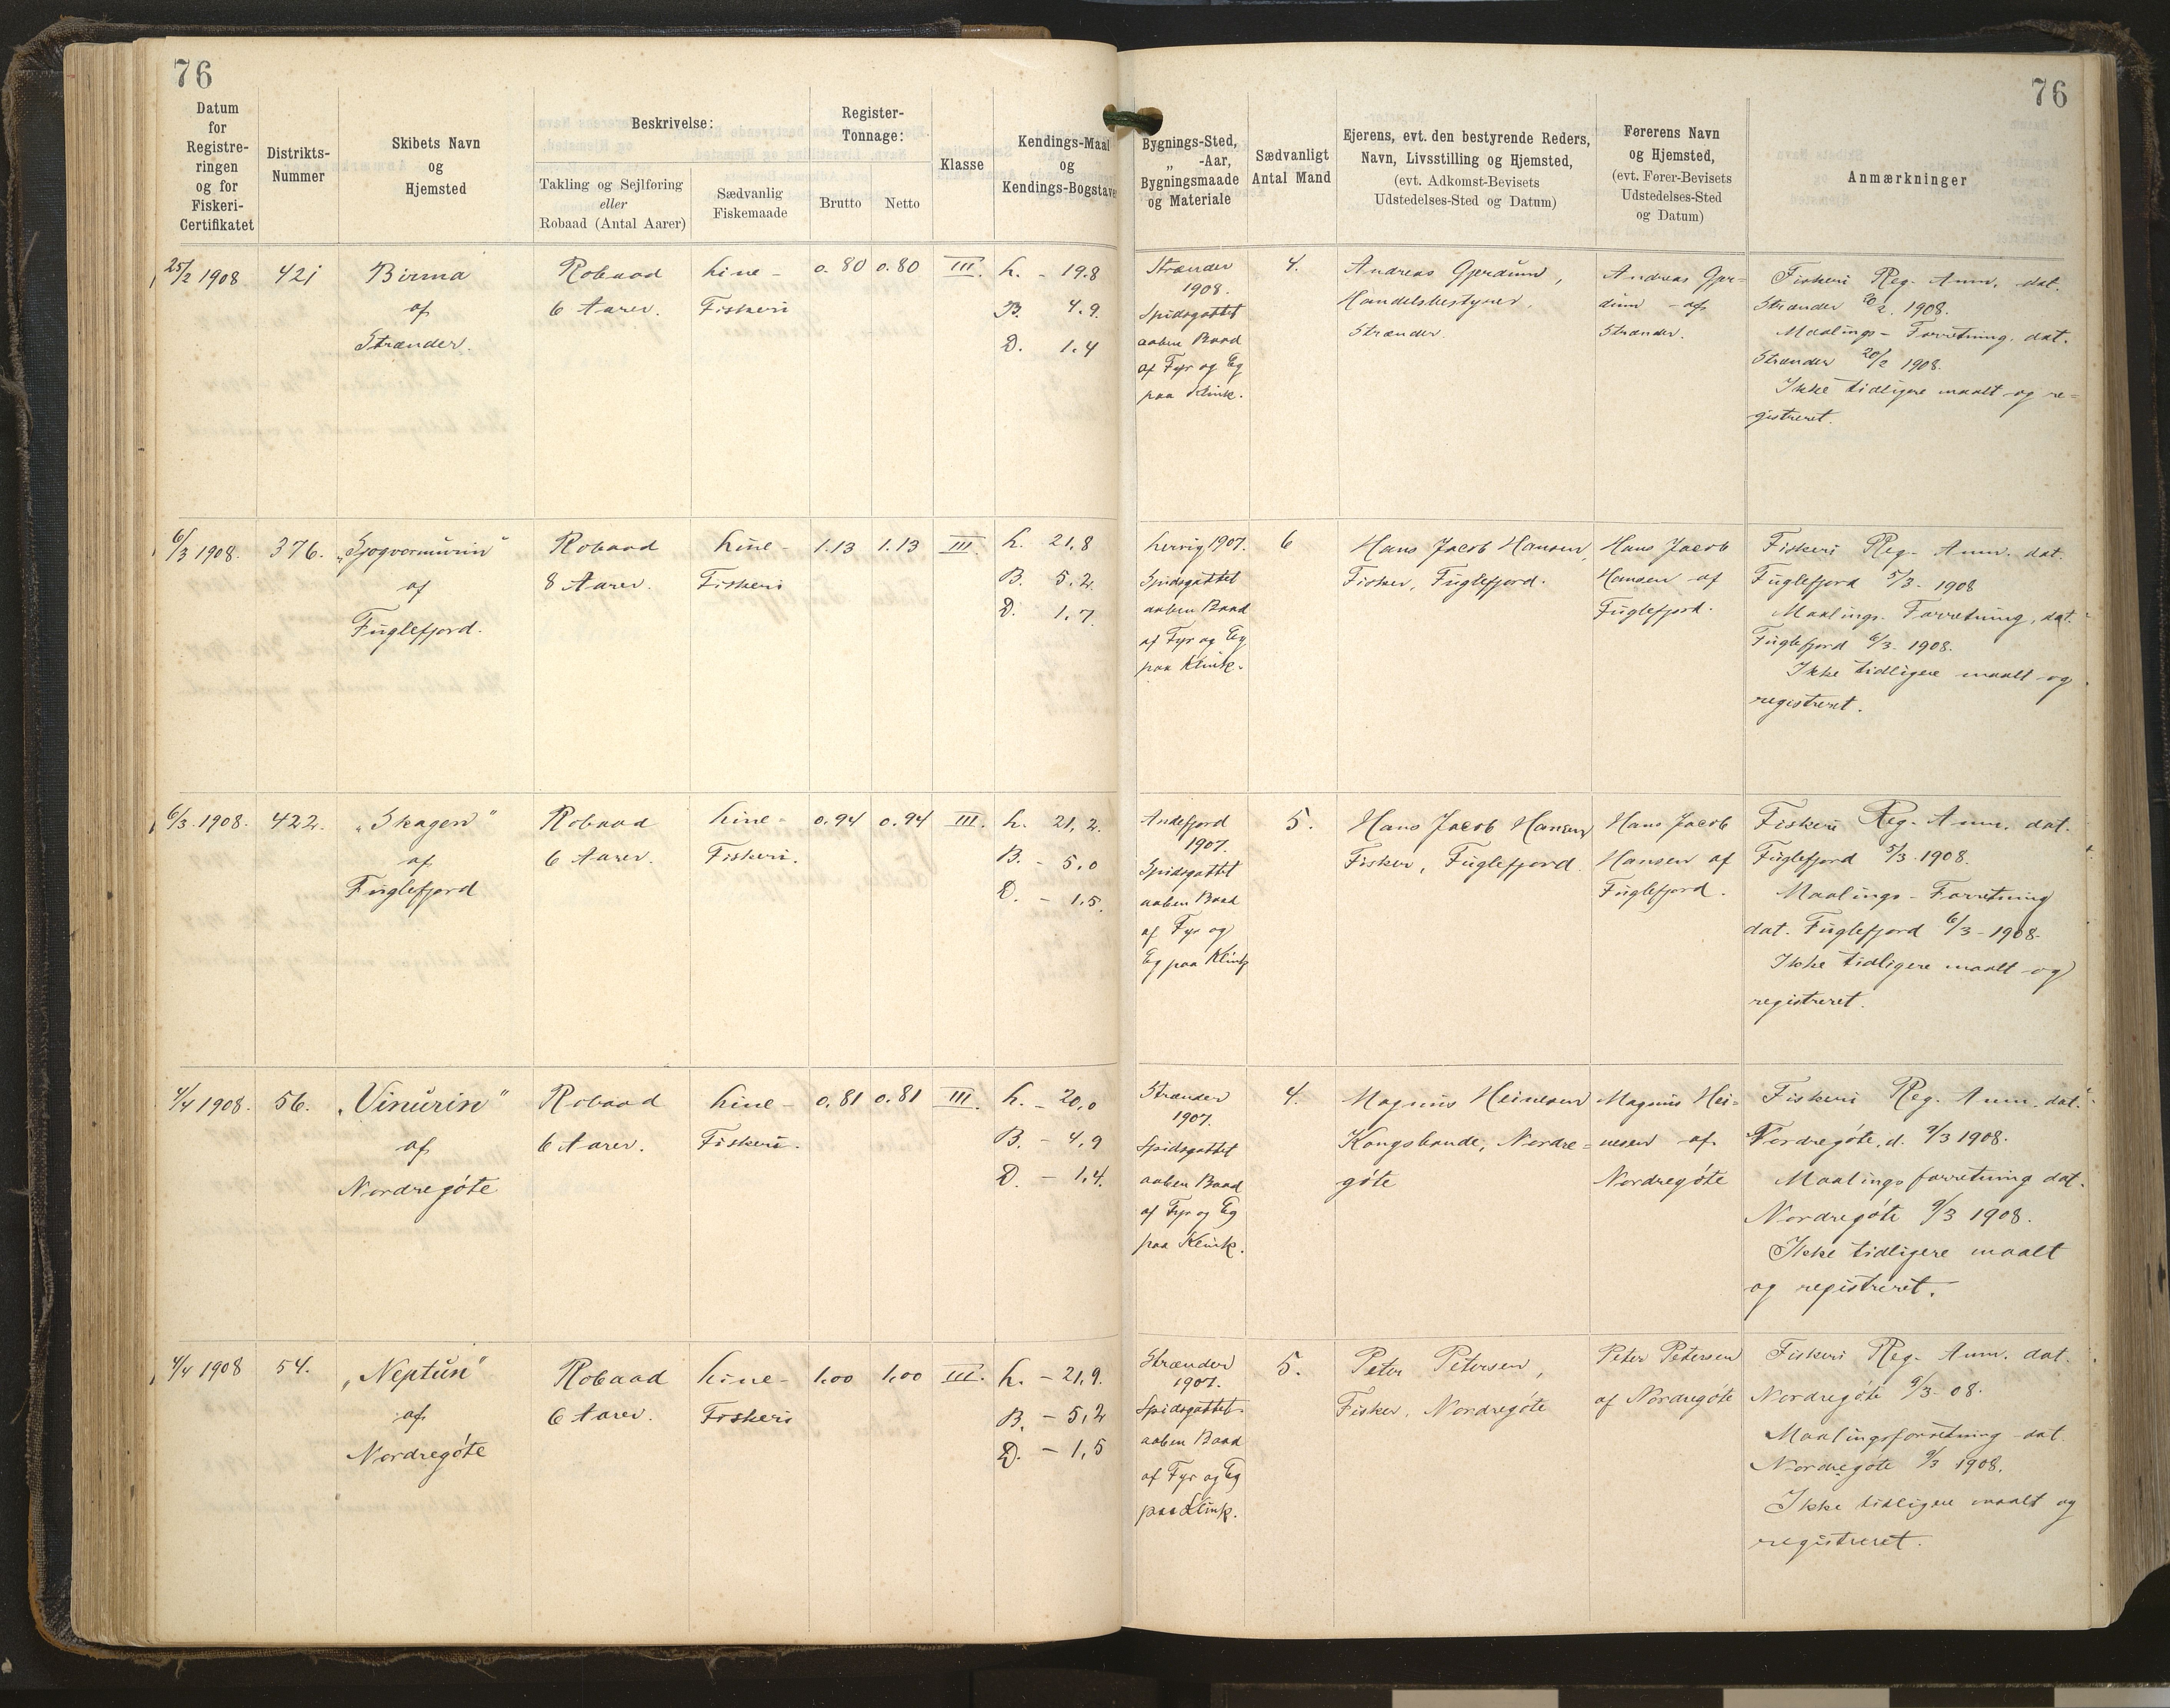 76
76
Datum for Registre- ringen og for Fiskeri- Certifikatet
Distrikts- Nummer
Skibets Navn og Hjemsted
Beskrivelse:
Takling og Sejlføring eller Robaad (Antal Aarer)
Sædvanlig Fiskemaade
Register- Tonnage:
Brutto
Netto
Klasse
Kendings-Maal og Kendings-Bogstaver
Bygnings-Sted, „ -Aar, Bygningsmaade og Materiale
Sædvanligt Antal Mand
Ejerens, evt. den bestyrende Reders, Navn, Livsstilling og Hjemsted, (evt. Adkomst-Bevisets Udstedelses-Sted og Datum)
Førerens Navn og Hjemsted, (evt. Fører-Bevisets Udstedelses-Sted og Datum)
Anmærkninger
25/2 1908
421
Birma
af
Strænder.
Robaad
6 Aarer.
Line-
Fiskeri
0.80
0.80
III.
L. - 19.8
B. 4.9.
D. 1.4
Strænder
1908.
Spidsgattet
aaben Baad
af Fyr og Eg
paa Klink.
4.
Andreas Gjerdum,
Handelsbestyrer,
Strænder.
Andreas Gjer-
dum - af
Strænder.
Fiskeri Reg. Anm. dat.
Strænder 20/2 1908.
Maalings-Forretning. dat.
Strænder 20/2 1908.
Ikke tidligere maalt og re-
gistreret.
6/3 1908.
376.
„Sjogvormurin"
af
Fuglefjord.
Robaad
8 Aarer.
Line-
Fiskeri
1.13
1.13
III.
L. 21,8
B. 5,2.
D. 1,7
Lervig 1907.
Spidsgattet
aaben Baad
af Fyr og Eg
paa Klink.
6
Hans Jacob Hansen,
Fisker, Fuglefjord.
Hans Jacob
Hansen af
Fuglefjord.
Fiskeri Reg- Anm. dat.
Fuglefjord 5/3- 1908
Maalings- Forretning, dat.
Fuglefjord 6/3- 1908.
Ikke tidligere maalt og
registreret.
6/3 1908.
422.
„Skagen"
af
Fuglefjord
Robaad
6 Aarer.
Line-
Fiskeri.
0.94
0.94
III.
L. 21,2.
B. - 5,0
D. - 1,5.
Andefjord
1907.
Spidsgattet
aaben Baad
af Fyr og
Eg paa Klink
5.
Hans Jacob Hansen
Fisker, Fuglefjord.
Hans Jacob
Hansen af
Fuglefjord.
Fiskeri Reg- Anm. dat.
Fuglefjord 5/3-1908.
Maalings-Forretning
dat. Fuglefjord 6/3-1908.
Ikke tidligere maalt og
registreret.
4/4 1908.
56.
„Vinurin"
af
Nordregóte
Robaad
6 Aarer.
Line-
Fiskeri.
0,81
0.81
III.
L. - 20,0
B. - 4,9
D. - 1,4.
Strænder
1907.
Spidsgattet
aaben Baad
af Fyr og Eg
paa Klink.
4.
Magnus Heinesen
Kongsbonde, Nordre-
góte
Magnus Hei-
nesen af
Nordregóte
Fiskeri Reg. Anm. dat.
Nordregóte, d. 9/3 1908.
Maalingsforretning dat.
Nordregóte 9/3 1908.
Ikke tidligere maalt
og registreret.
4/4 1908
54.
„Neptun"
af
Nordregóte
Robaad
6 Aarer.
Line-
Fiskeri
1,00
1,00
III.
L. - 21,9.
B. - 5,2
D. - 1,5
Strænder
1907.
Spidsgattet
aaben Baad
af Fyr og Eg
paa Klink.
5.
Peter Petersen,
Fisker, Nordregóte
Peter Petersen
af Nordregóte
Fiskeri Reg- Anm. dat.
Nordregóte 9/3-08.
Maalingsforretning dat.
Nordregóte 9/3 1908.
Ikke tidligere maalt og
registreret.